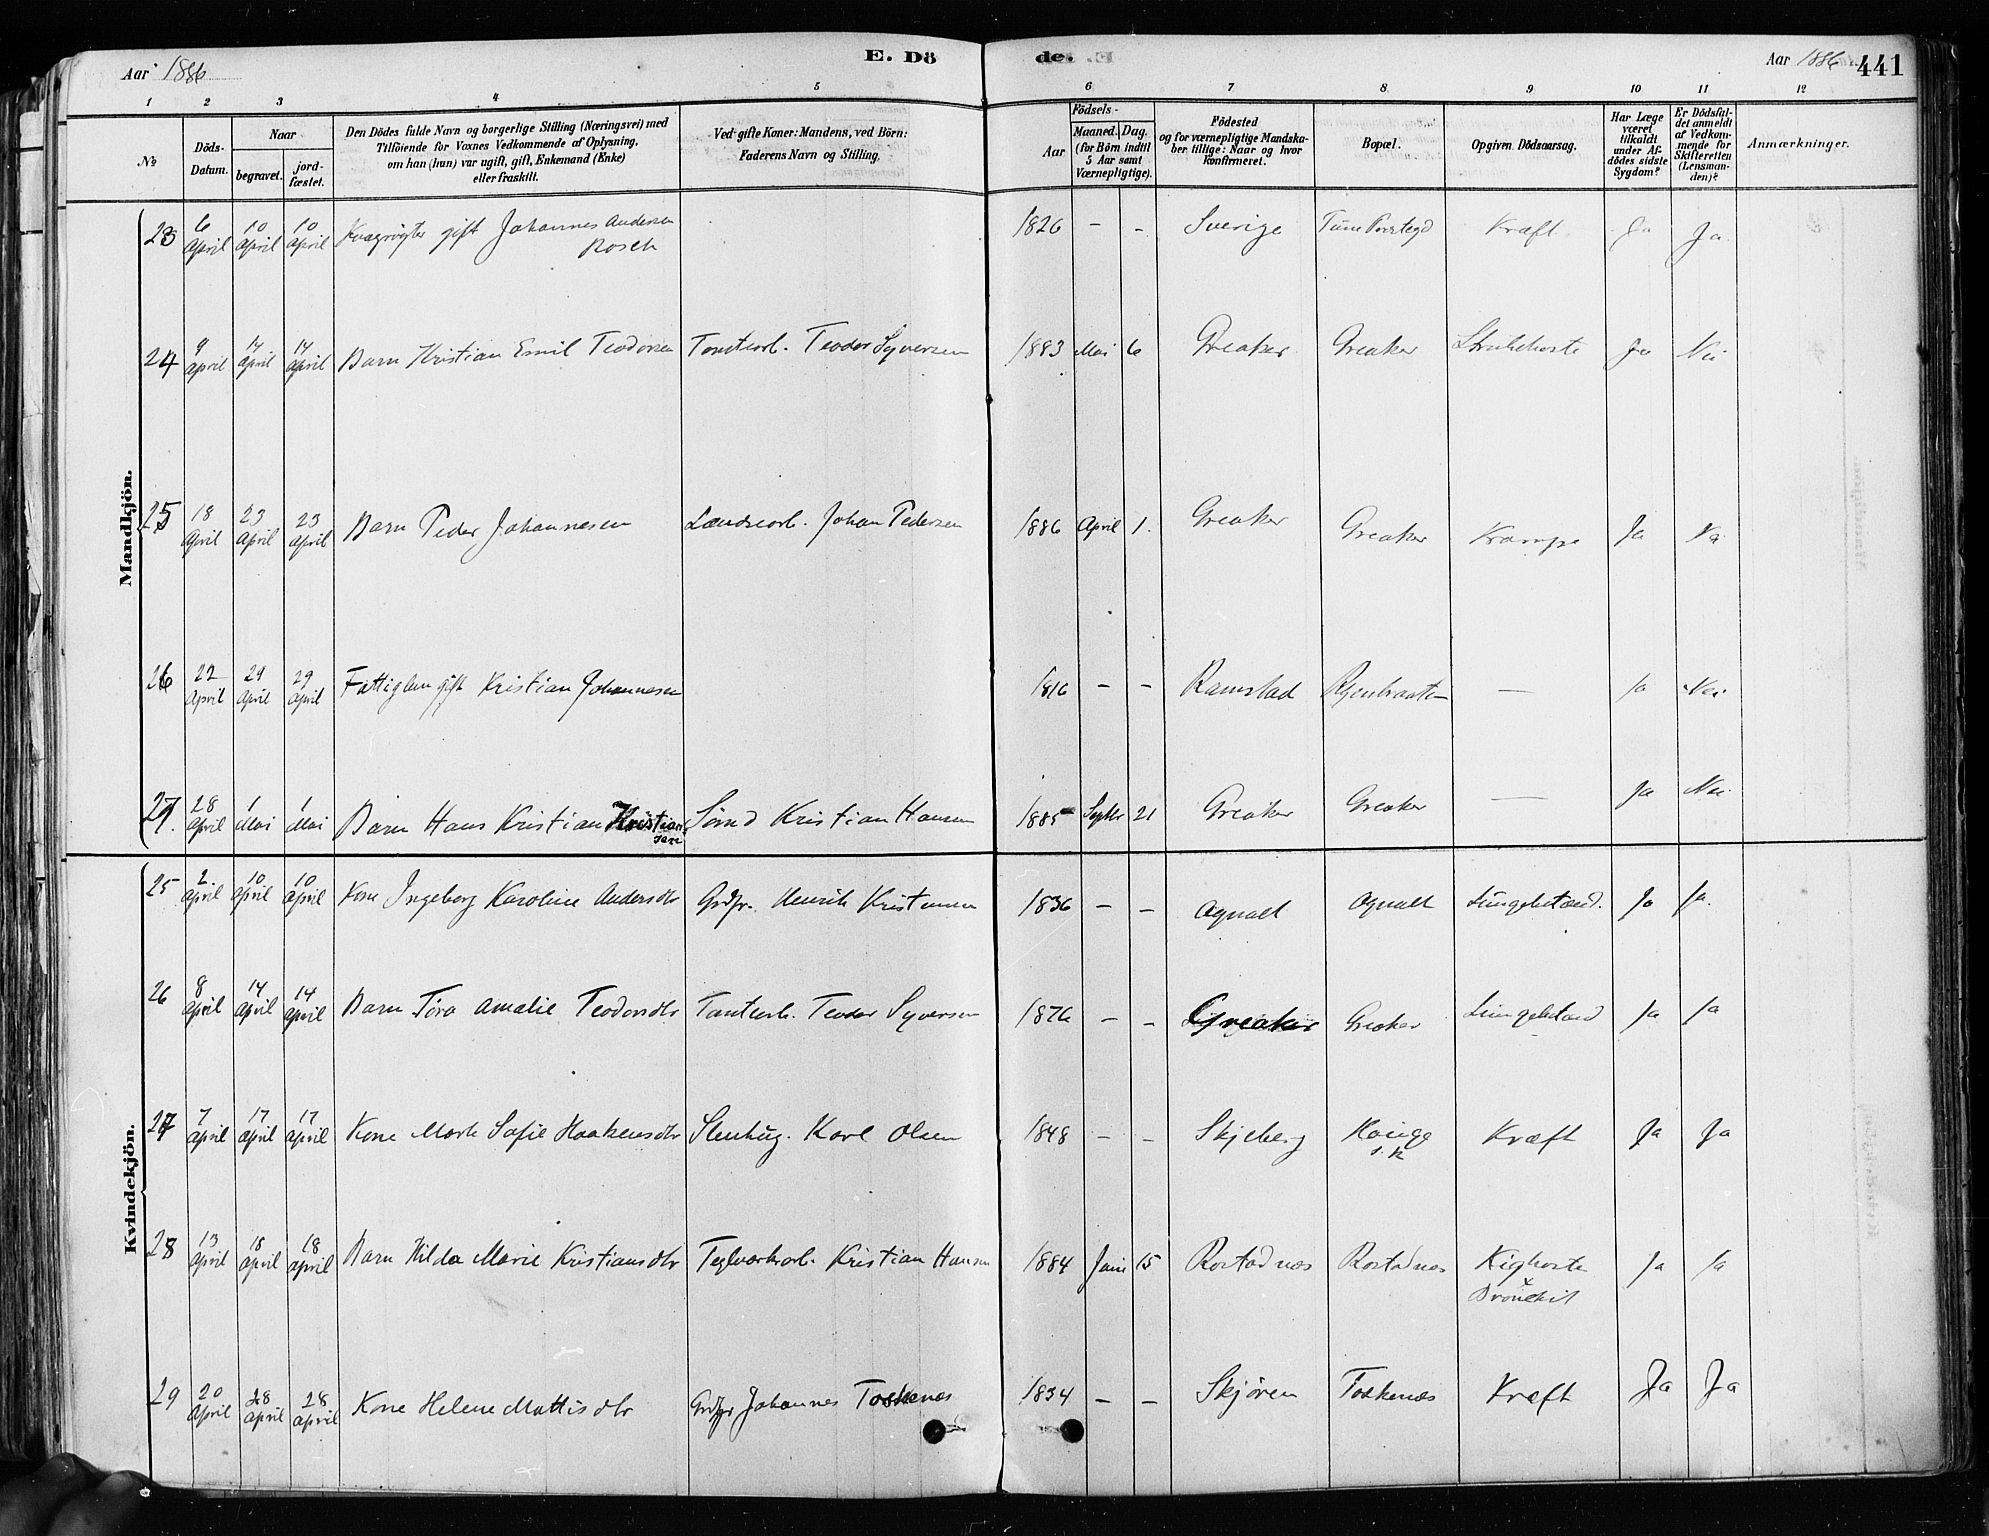 Aar 1886
E. Dö
de.
Aar 1886
441
1 2 3 4 5 6 7 8 9 10 11 12
No
Döds-Datum.
Naar
begravet.
jord-fæstet.
Den Dödes fulde Navn og borgerlige Stilling (Næringsvei) med
Tilföiende for Voxnes Vedkommende af Oplysning,
om han (hun) var ugift, gift, Enkemand (Enke)
eller fraskilt.
Ved gifte Koner: Mandens, ved Börn:
Faderens Navn og Stilling.
Födsels-
Aar
Maaned. Dag.
(for Börn indtil
5 Aar samt
Værnepligtige).
Födested
og for værnepligtige Mandska-
ber tillige: Naar og hvor
konfirmeret.
Bopæl.
Opgiven Dödsaarsag.
Har Læge
været
tilkaldt
under Af-
dödes sidste
Sygdom?
Er Dödsfal-
det anmeldt
af Vedkom-
mende for
Skifteretten
(Lensman-
den)?
Anmærkninger.
Mandkjön.
23 6 April 10 April 10 April gift Johannes Andersen Rosch 1826 - - Sverige Tune Kræft Ja Ja
24 9 April 14 April 14 April Barn Kristian Emil Teodorsen Tomtearb. Teodor Syversen 1883 Mai 6 Greaker Greaker Strubehoste Ja Nei
25 18 April 23 April 23 April Barn Peder Johannesen Landsearb. Johan Pedersen 1886 April 1. Greaker Greaker Krampe Ja
26 22 April 29 April 29 April Fattiglem gift Kristian Johannesen 1816 - - Ramstad — Ja Nei
27. 28 April 1 Mai 1 Mai Barn Hans Kristian Kristiansen Sömd Kristian Hansen 1885 Septbr 21 Greaker Greaker — Ja Nei
Kvindekjön.
25 2 April 10 April 10 April Kone Ingeborg Karoline Andersdtr Grdbr. Henrik Kristensen 1836 - - Agnalt Agnalt Lungebetænd. Ja Ja.
26 8 April 14 April 14 April Barn Tora Amalie Teodorsdtr Tomtearb. Teodor Syversen 1876 - - Greaker Greaker Lungebetænd Ja Ja
27 7 April 17 April 17 April Kone Marte Sofie Haakensdtr Stenhug. Karl Olsen 1848 - - Skjeberg Hauge s.k Kræft Ja Ja
28 13 April 18 April 18 April Barn Hilda Marie Kristiansdtr Teglværksarb. Kristian Hansen 1884 Juni 15 Rostadnæs Rostadnæs Kighoste & Bronchit Ja Ja
29 20 April 28 April 28 April Kone Helene Mattisdtr Grdbr Johannes Toskenæs 1834 - - Skjören Toskenæs Kræft Ja Ja